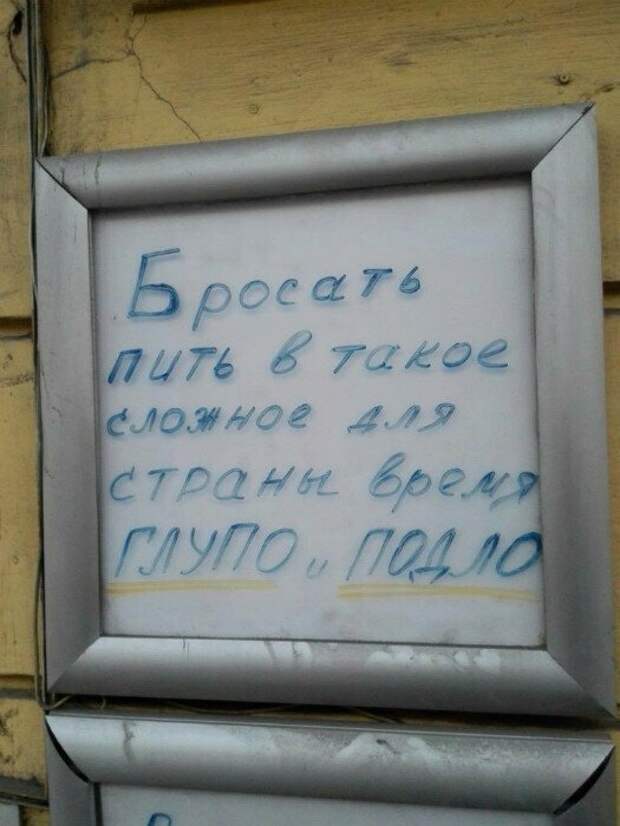 Бросать
пить в такое
сложное для
страны время
ГЛУПО и ПОДЛО